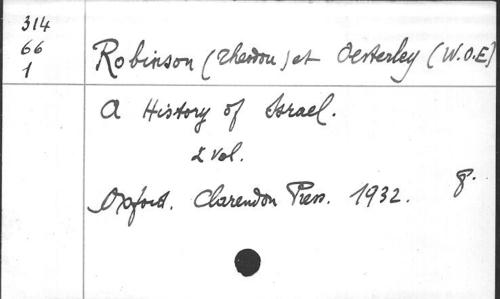 314
66
1
Robinson (Theodou) et Oesterley (W.O.E)
A History of Israel.
2 vol.
Oxford. Clarendon Press. 1932. 8.